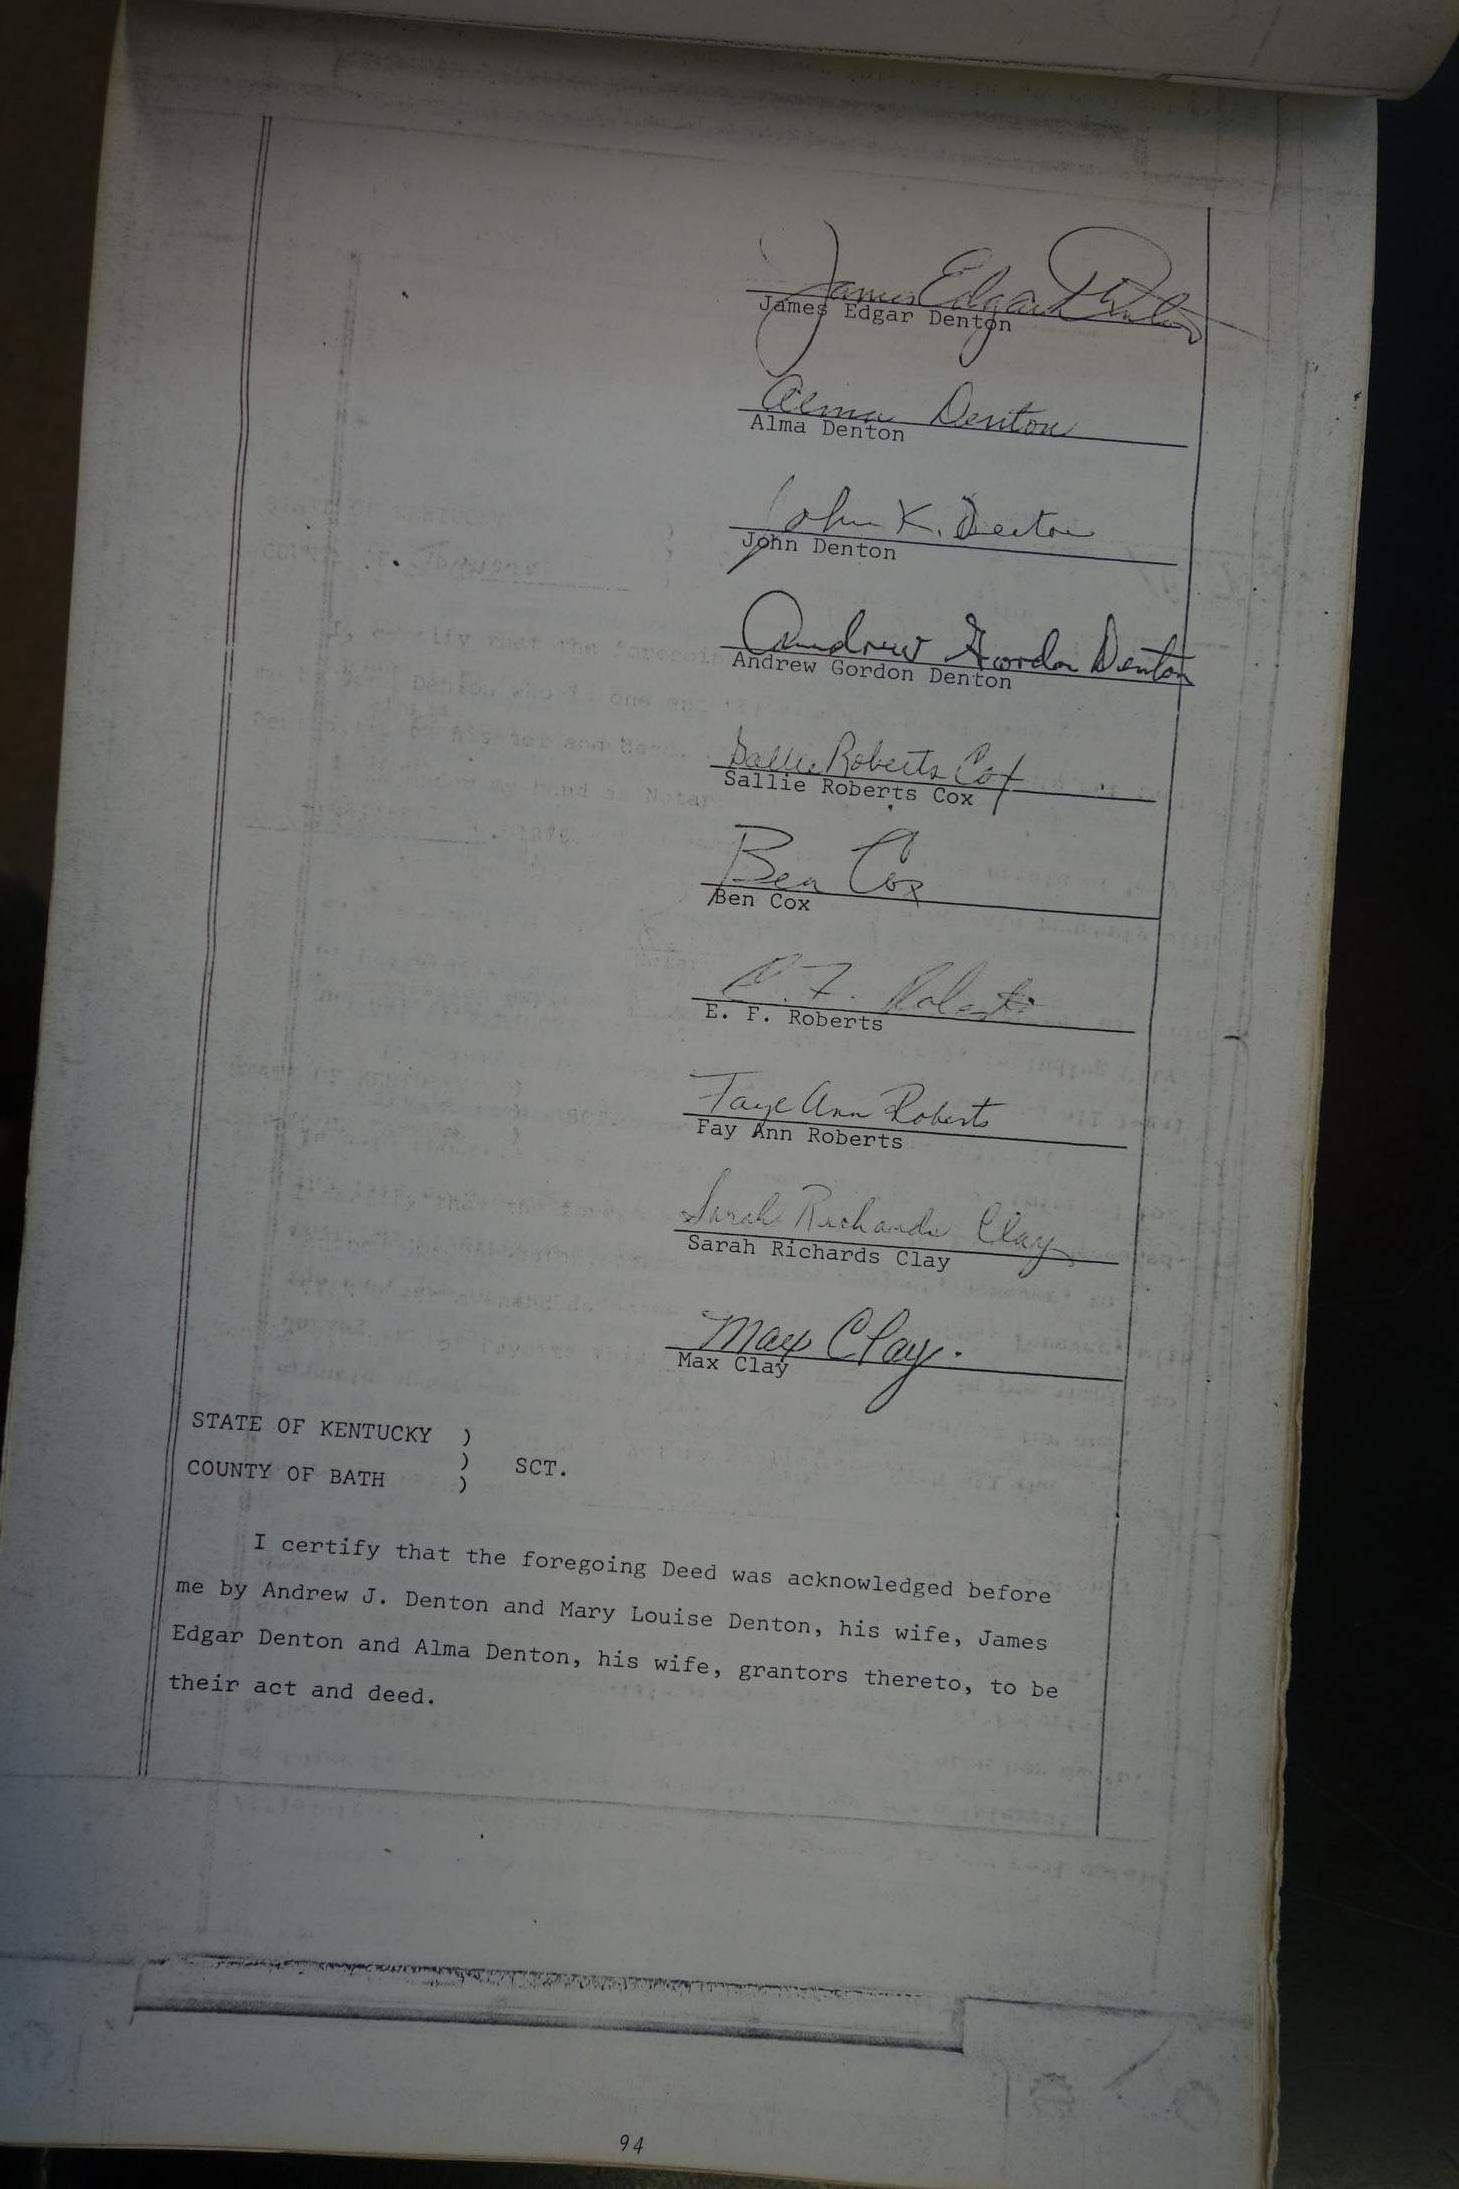 James Edgar Denton
James Edgar Denton
Alma Denton
Alma Denton
John K. Denton
John Denton
Andrew Gordon Denton
Andrew Gordon Denton
Sallie Roberts Cox
Sallie Roberts Cox
Ben Cox
Ben Cox
E. F. Roberts
E. F. Roberts
Faye Ann Roberts
Fay Ann Roberts
Sarah Richards Clay
Sarah Richards Clay
Max Clay.
Max Clay
STATE OF KENTUCKY )
) SCT.
COUNTY OF BATH )
I certify that the foregoing Deed was acknowledged before
me by Andrew J. Denton and Mary Louise Denton, his wife, James
Edgar Denton and Alma Denton, his wife, grantors thereto, to be
their act and deed.
94